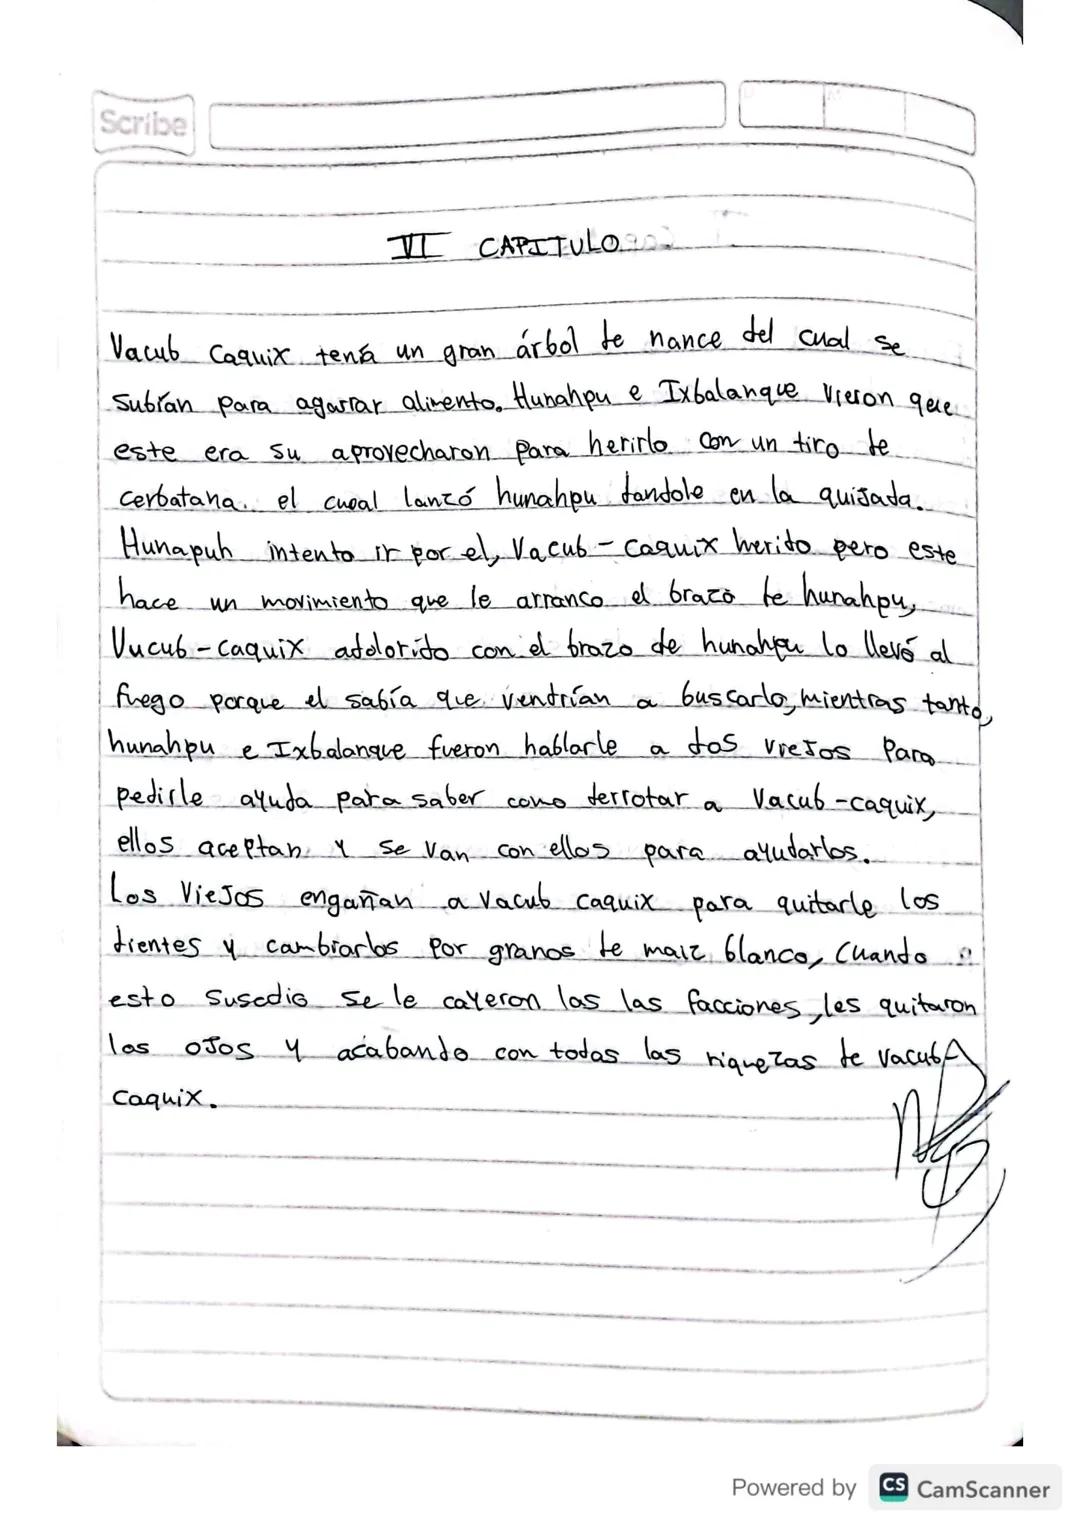 Scribe
VI CAPITULO
Vacub Caquix tená un gran árbol de nance del cual se
subían para agarrar alimento. Hunahpu e Ixbalanque vieron que
este era su aprovecharon para herirlo con un tiro de
cerbatana. el cual lanzó hunahpu dandole en la quijada.
Hunapuh intento ir por el, Vacub-caquix herido pero este
hace un movimiento que le arranco el brazo de hunahpu,
Vucub-caquix adolorido con el brazo de hunahpu lo llevó al
fuego porque el sabía que vendrían a buscarlo, mientras tanto,
hunahpu e Ixbalanque fueron hablarle a dos viejos para
pedirle ayuda para saber como derrotar a Vacub-caquix,
ellos aceptan y se van con ellos para ayudarlos.
Los Viejos engañan a Vacub caquix para quitarle los
dientes y cambiarlos por granos de maiz blanco, Cuando
esto susedio se le cayeron las las facciones, les quitaron
los ojos y acabando con todas las riquezas de vacub
caquix.
Powered by CS CamScanner